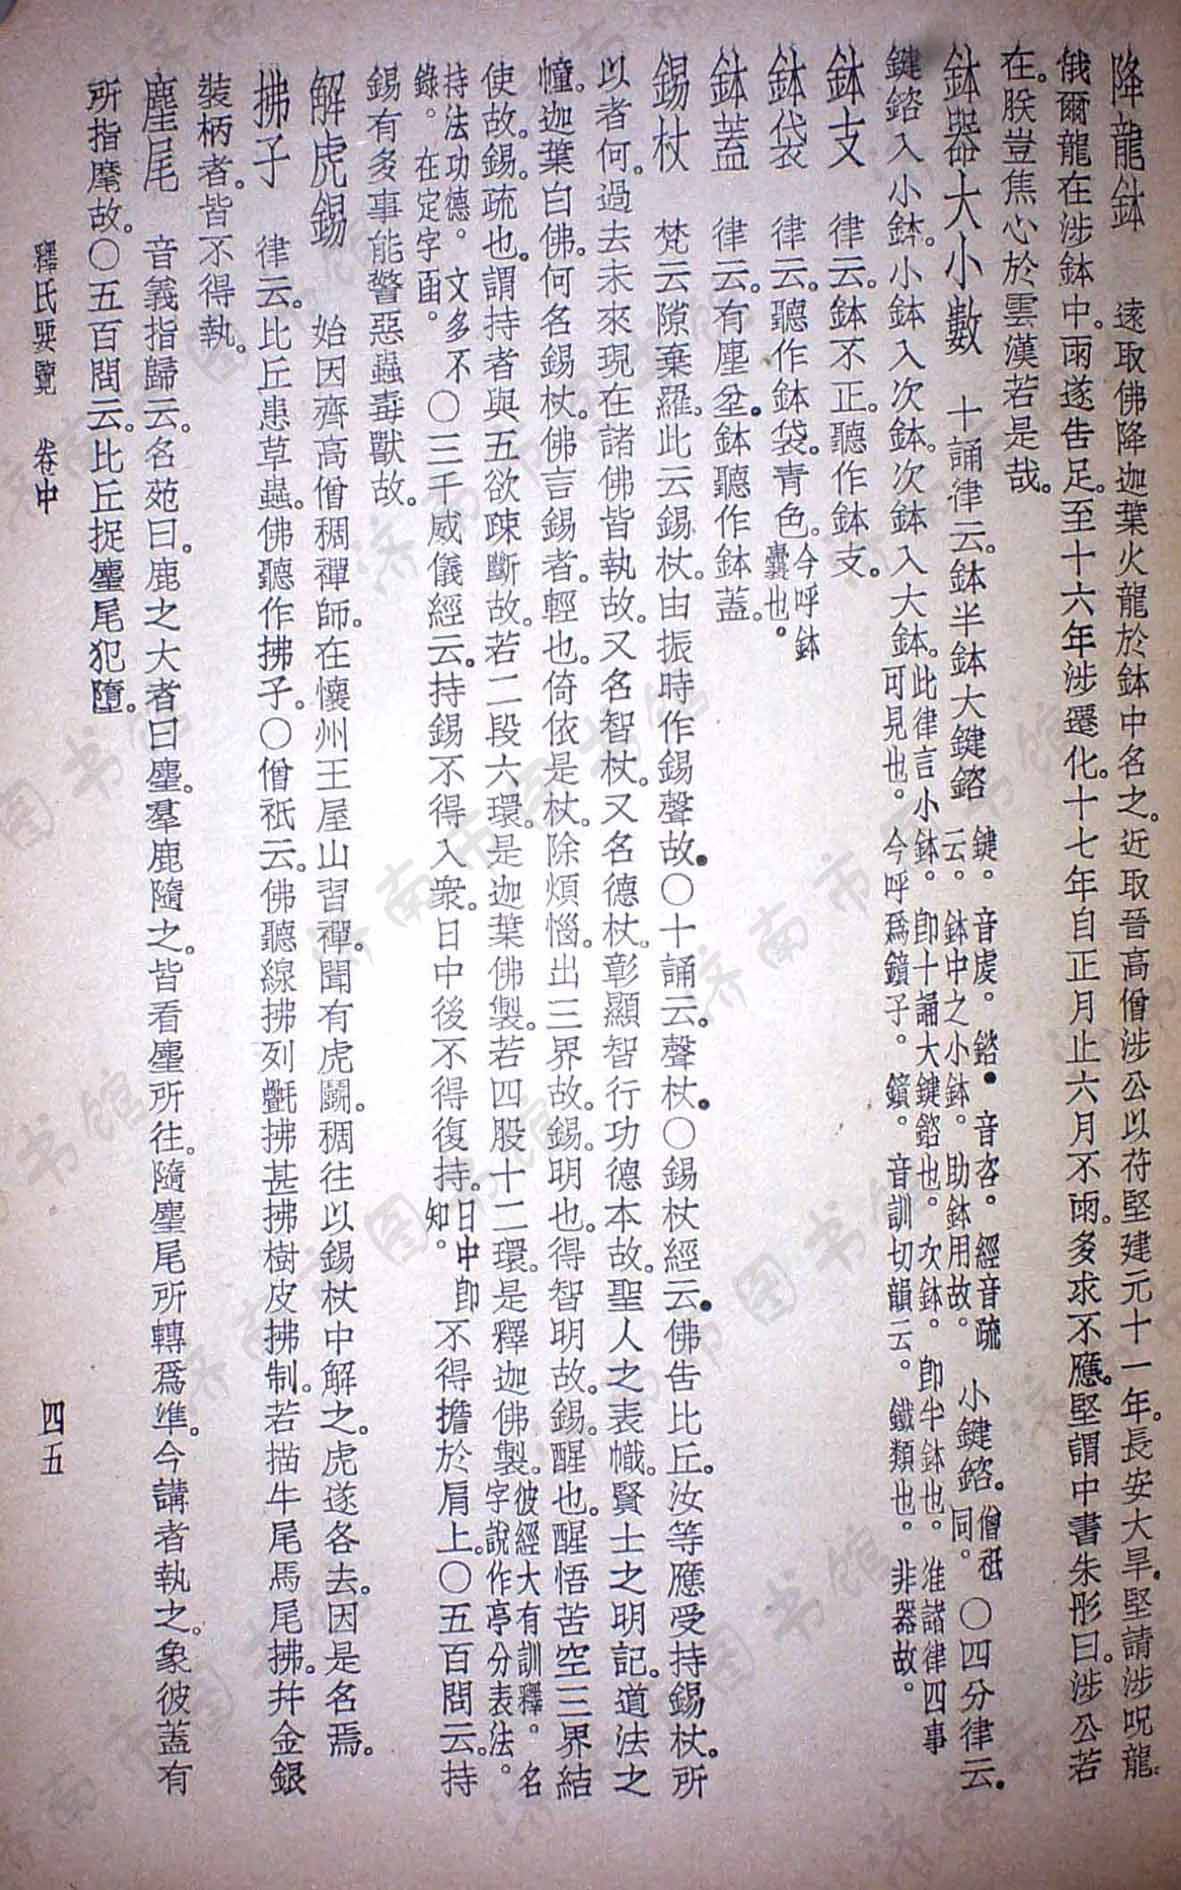 降龍鉢　遠取佛降迦葉火龍於鉢中名之。近取晉高僧涉公以苻堅建元十一年。長安大旱。堅請涉呪龍。
俄爾龍在涉鉢中。雨遂告足。至十六年涉遷化。十七年自正月止六月不雨。多求不應。堅謂中書朱彤曰。涉公若
在。朕豈焦心於雲漢若是哉。
鉢器大小數　十誦律云。鉢半鉢大鍵鎔鍵。音虔。鎔。音咨。經音疏云。鉢中之小鉢。助鉢用故。小鍵鎔。僧祇同。〇四分律云。
鍵鎔入小鉢。小鉢入次鉢。次鉢入大鉢。此律言小鉢。卽十誦大鍵鎔也。次鉢。卽半鉢也。准諸律四事可見也。今呼爲鐼子。鐼。音訓切韻云。鐵類也。非器故。
鉢支　律云。鉢不正。聽作鉢支。
鉢袋　律云。聽作鉢袋。青色。今呼鉢囊也。
鉢蓋　律云。有塵坌鉢聽作鉢蓋。
錫杖　梵云隙棄羅。此云錫杖。由振時作錫聲故。〇十誦云。聲杖。〇錫杖經云。佛告比丘。汝等應受持錫杖。所
以者何。過去未來現在諸佛皆執故。又名智杖。又名德杖。彰顯智行功德本故。聖人之表幟。賢士之明記。道法之
幢。迦葉白佛。何名錫杖。佛言錫者。輕也。倚依是杖。除煩惱。出三界故。錫。明也。得智明故。錫。醒也。醒悟苦空三界結
使故。錫。疏也。謂持者與五欲疎斷故。若二段六環。是迦葉佛製。若四股十二環。是釋迦佛製。彼經大有訓釋。名字說作亭分表法。
持法功德。文多不錄。在定字函。〇三千威儀經云。持錫不得入衆。日中後不得復持。日中卽知。不得擔於肩上。〇五百問云。持
錫有多事能警惡蟲毒獸故。
解虎錫　始因齊高僧稠禪師。在懷州王屋山習禪。聞有虎鬬。稠往以錫杖中解之。虎遂各去。因是名焉。
拂子　律云。比丘患草蟲。佛聽作拂子。〇僧祇云。佛聽線拂列氎拂甚拂樹皮拂制。若描牛尾馬尾拂。幷金銀
裝柄者。皆不得執。
麈尾　音義指歸云。名苑曰。鹿之大者曰麈。羣鹿隨之。皆看麈所往。隨麈尾所轉爲準。今講者執之。象彼蓋有
所指麾故。〇五百問云。比丘捉麈尾犯墮。
釋氏要覽　卷中
四五